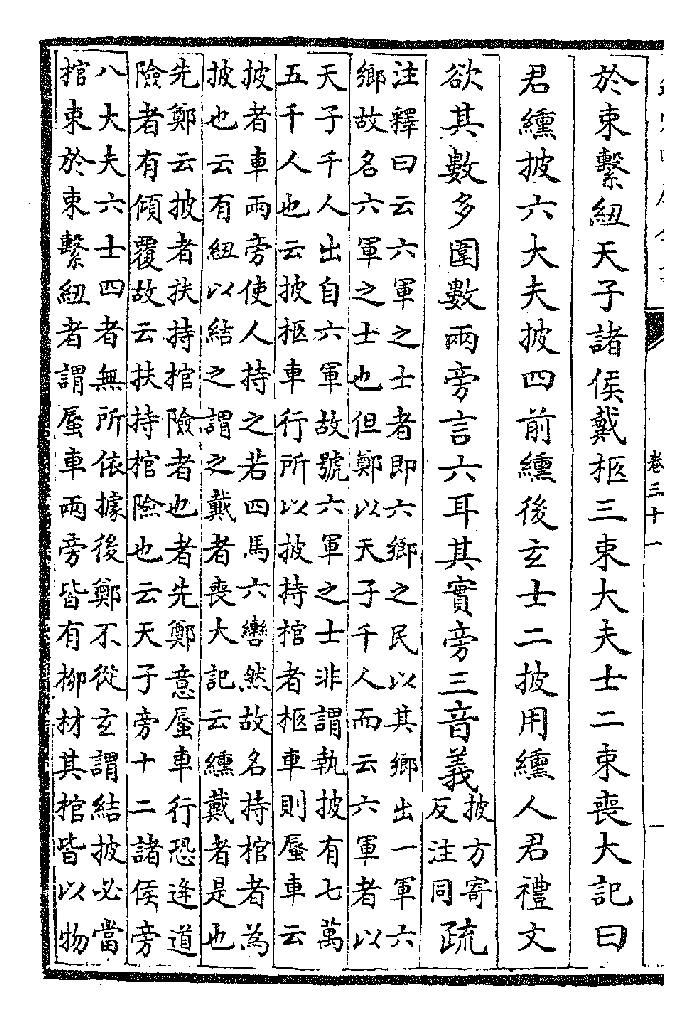 卷三十一
於束繫紐天子諸侯戴柩三束大夫士二束喪大記曰
君纁披六大夫披四前纁後玄士二披用纁人君禮文
欲其數多圍數兩旁言六耳其實旁三音義
披方寄
反注同
疏
注釋曰云六軍之士者即六鄉之民以其鄉出一軍六
鄉故名六軍之士也但鄭以天子千人而云六軍者以
天子千人出自六軍故號六軍之士非謂執披有七萬
五千人也云披柩車行所以披持棺者柩車則蜃車云
披者車兩旁使人持之若四馬六轡然故名持棺者為
披也云有紐以結之謂之戴者喪大記云纁戴者是也
先鄭云披者扶持棺險者也者先鄭意蜃車行恐逢道
險者有傾覆故云扶持棺險也云天子旁十二諸侯旁
八大夫六士四者無所依據後鄭不從玄謂結披必當
棺束於束繫紐者謂蜃車兩旁皆有栁材其棺皆以物